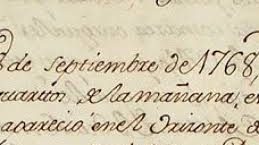 de septiembre de 1768,
de la mañana, e
aparecio en el Orizonte d